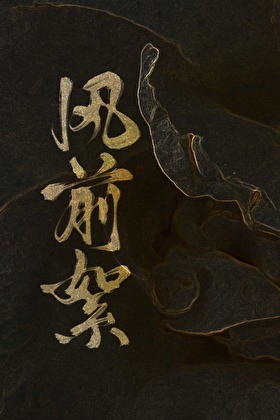 风前絮